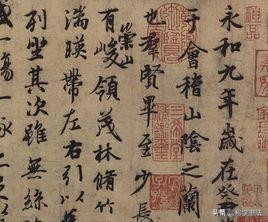 永和九年歲在癸
于會稽山陰之蘭
也群賢畢至少長
有崇山峻領茂林脩竹
湍暎帶左右引以
列坐其次雖無絲
觴一詠
头条